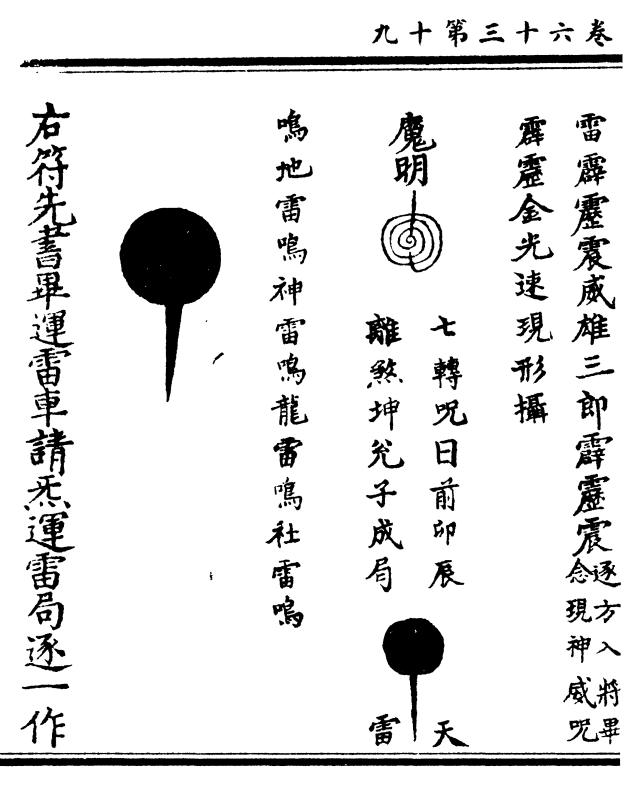 卷六十三第十九
雷霹靂震威雄三郎霹靂震逐方入將畢
念現神威咒
霹靂金光速現形攝
魔明
七轉咒曰前卯辰
離煞坤兊子成局
天
雷
鳴地雷鳴神雷鳴龍雷鳴社雷鳴
右符先書畢運雷車請炁運雷局逐一作